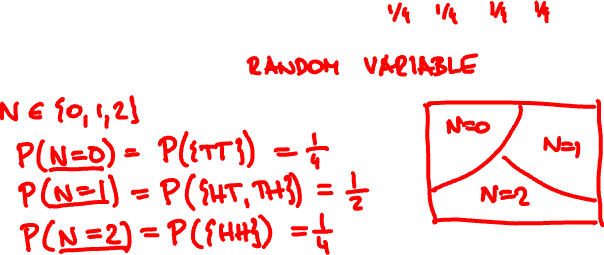 1/4 1/4 1/4 1/4
RANDOM VARIABLE
N ∈ {0,1,2}
P(N=0) = P({TT}) = 1/4
P(N=1) = P({HT, TH}) = 1/2
P(N=2) = P({HH}) = 1/4
N=0
N=1
N=2